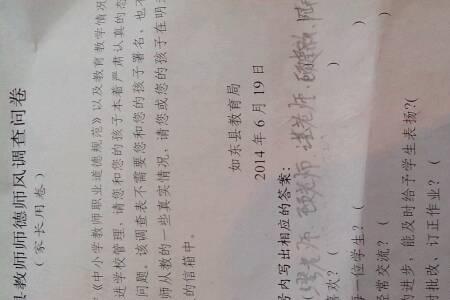 县教师师德师风调查问卷
（家长用卷）
《中小学教师职业道德规范》以及教育教学情况
进学校管理，请您和您的孩子本着严肃认真的态
问题。该调查表不需要您和您的孩子署名，也不
师从教的一些真实情况，请您或您的孩子在明
的信箱中。
如东县教育局
2014年6月19日
号内写出相应的答案：
喜欢？（ 老师 老师 老师
一位学生？（ ）
经常交流？（ ）
的进步，能及时给予学生表扬？(
的批改、订正作业？（